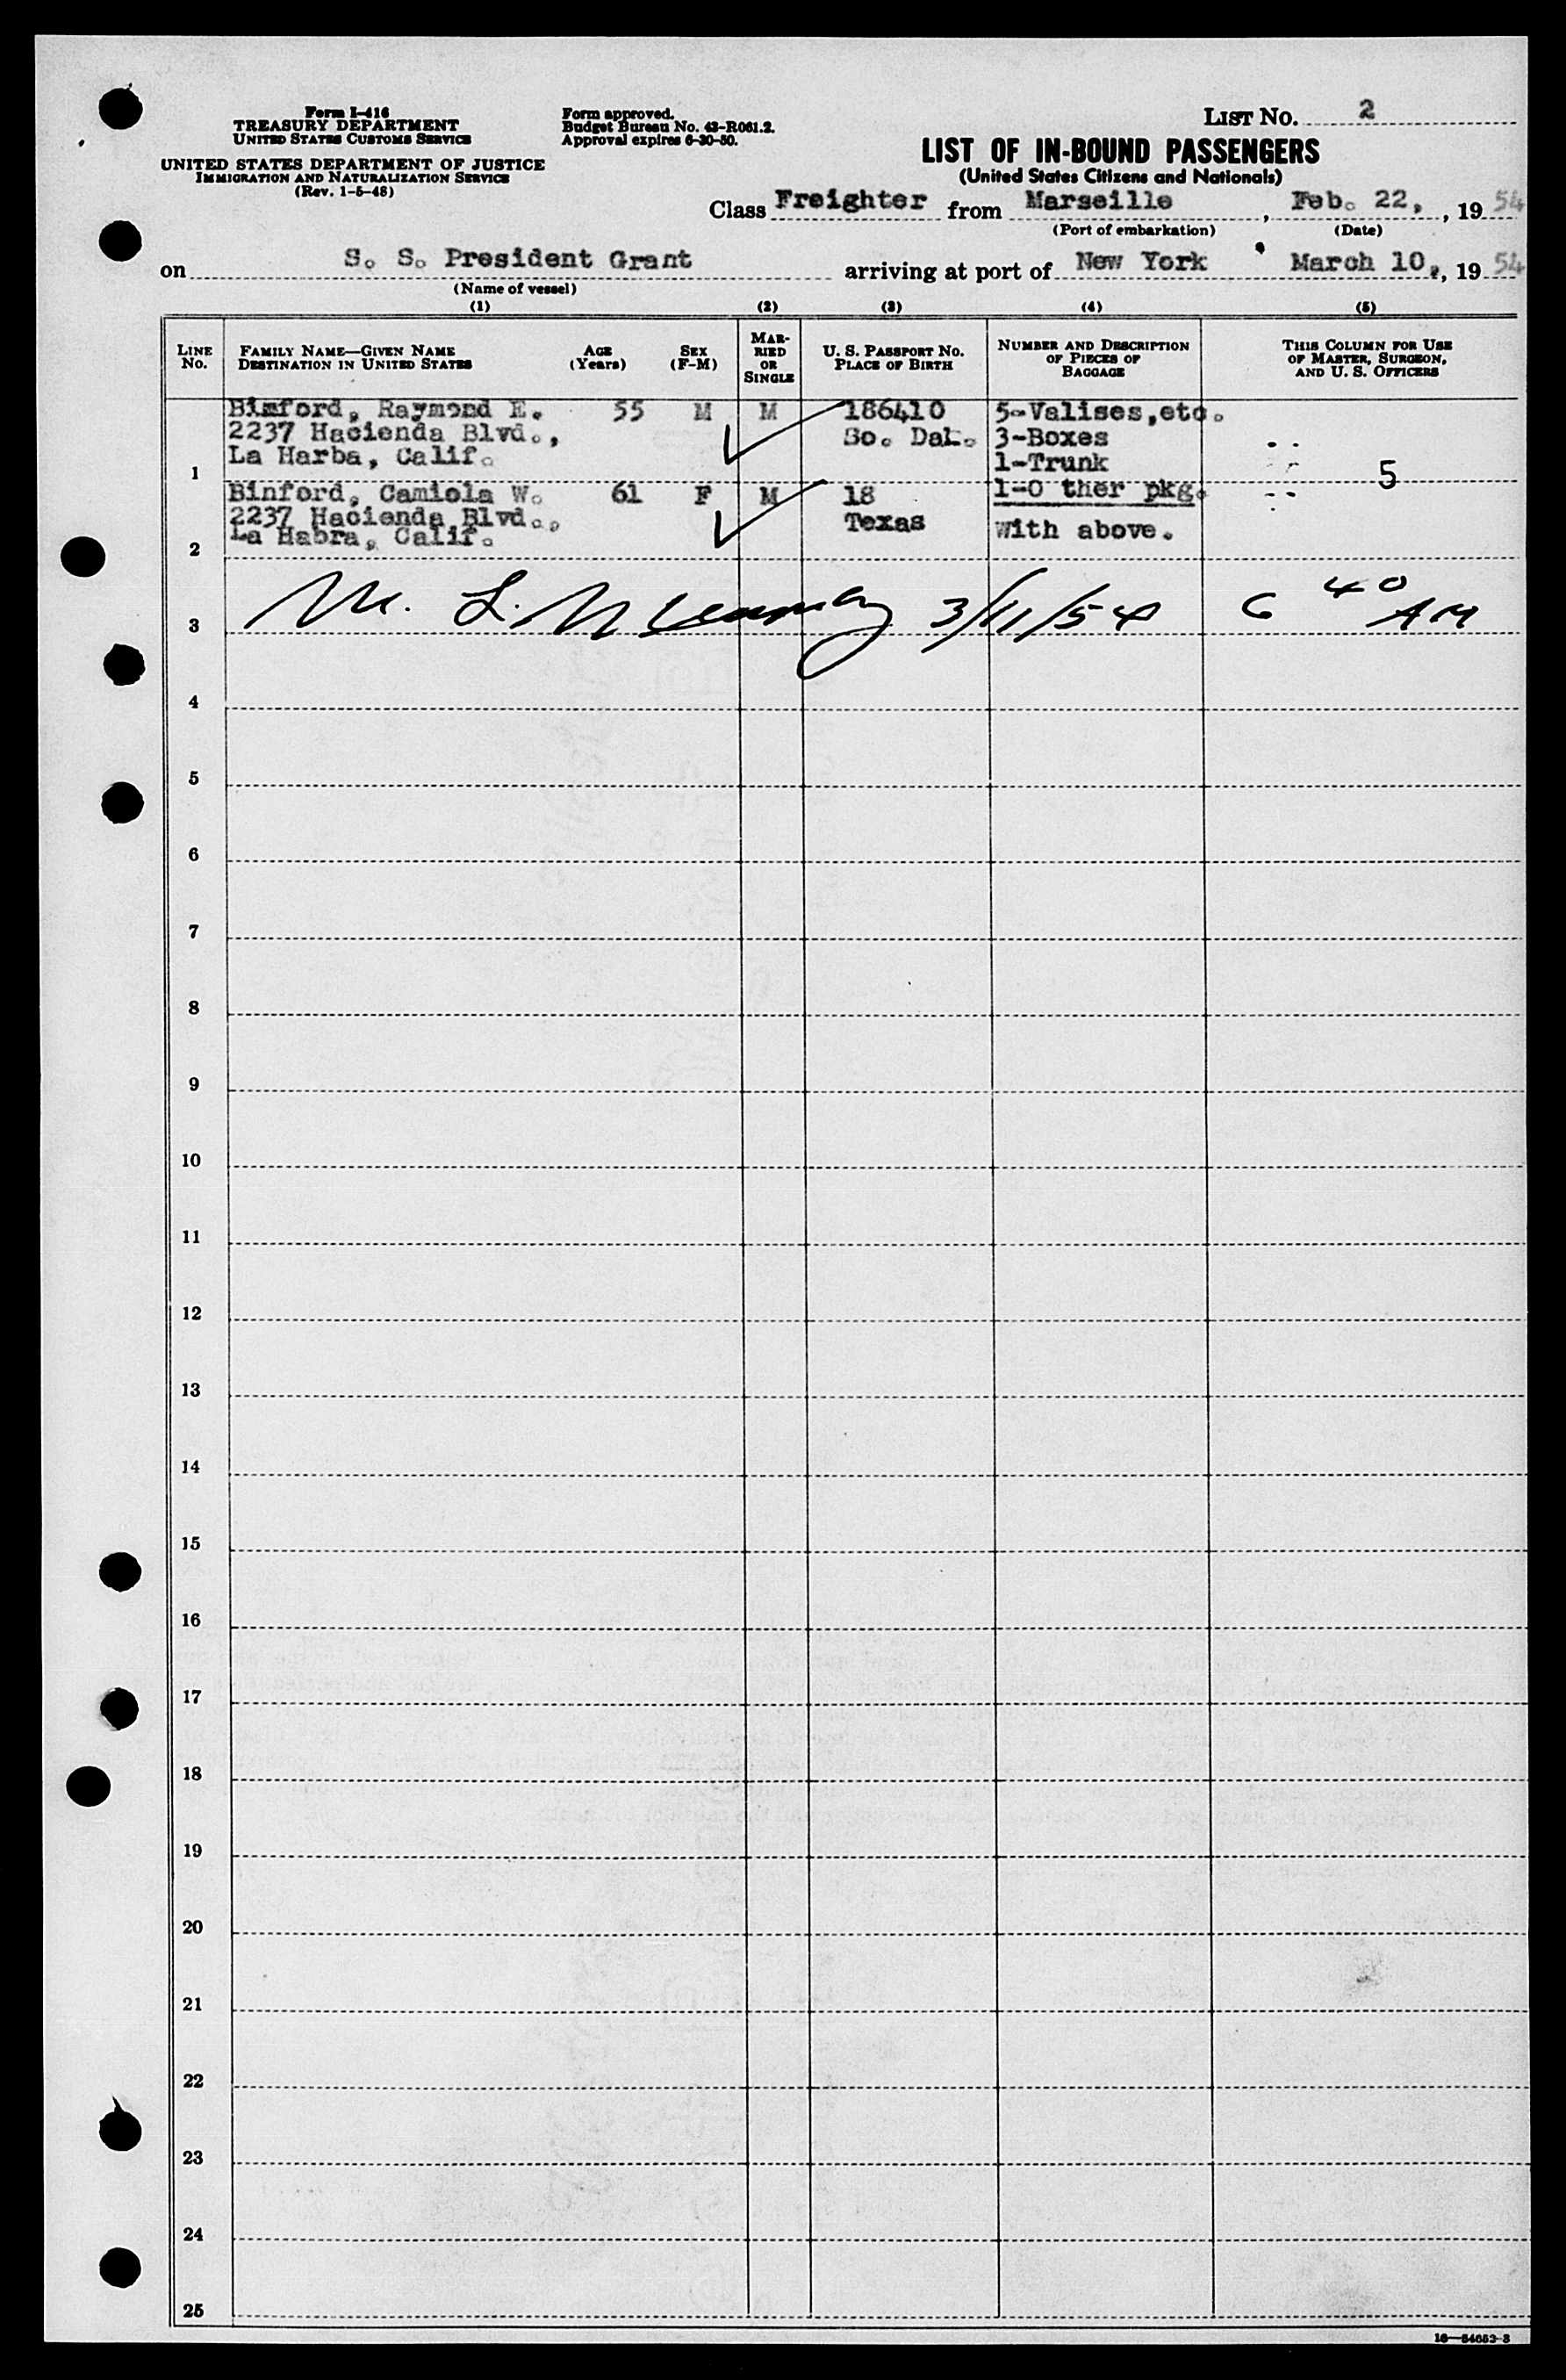 Form I-416
TREASURY DEPARTMENT
UNITED STATES CUSTOMS SERVICE
UNITED STATES DEPARTMENT OF JUSTICE
IMMIGRATION AND NATURALIZATION SERVICE
(Rev. 1-5-48)
Form approved.
Budget Bureau No. 43-R061.2.
Approval expires 6-30-50.
LIST No. 2
LIST OF IN-BOUND PASSENGERS
(United States Citizens and Nationals)
Class Freighter from Marseille, Feb. 22, , 19 54
(Port of embarkation) (Date)
on S. S. President Grant arriving at port of New York March 10., 19 54
(Name of vessel)
(1) (2) (3) (4) (5)
LINE No.
FAMILY NAME—GIVEN NAME
DESTINATION IN UNITED STATES
AGE (Years)
SEX (F-M)
MARRIED OR SINGLE
U. S. PASSPORT No.
PLACE OF BIRTH
NUMBER AND DESCRIPTION OF PIECES OF BAGGAGE
THIS COLUMN FOR USE OF MASTER, SURGEON, AND U. S. OFFICERS
Binford, Raymond E. 55 M M 186410 5-Valises,etc.
2237 Hacienda Blvd., So. Dak. 3-Boxes
La Harba, Calif. 1-Trunk
1 5
Binford, Camiola W. 61 F M 18 1-O ther pkg.
2237 Hacienda Blvd., Texas With above.
La Habra, Calif.
2
M. L. 3/11/54 6 40 AM
3
4
5
6
7
8
9
10
11
12
13
14
15
16
17
18
19
20
21
22
23
24
25
16—54652-3